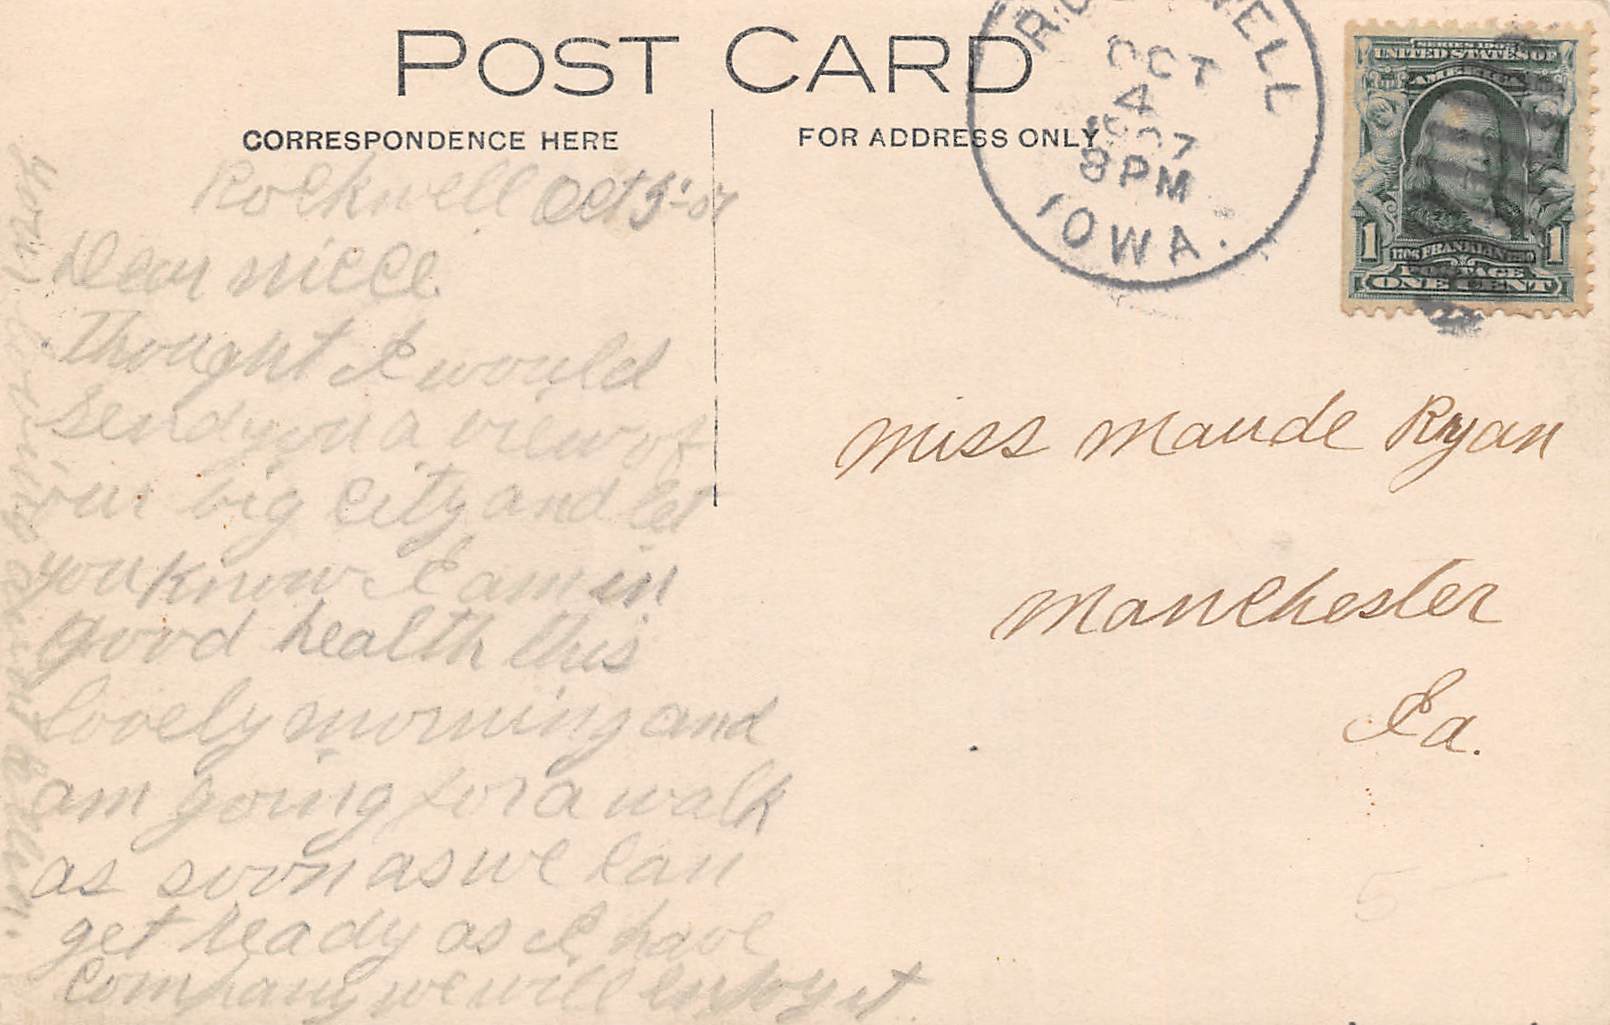 POST CARD
CORRESPONDENCE HERE
FOR ADDRESS ONLY
OCT
4
1907
8 PM
IOWA.
UNITED STATES OF
AMERICA
1 1
FRANKLIN
POSTAGE
ONE CENT
Rockwell Oct 3'-07
Dear niece
Thought I would
send you a view of
our big city and let
you know I am in
good health this
lovely morning and
am going for a walk
as soon as we can
get ready as I have
Company we will enjoy it
your loving aunt
Miss Maude Ryan
Manchester
Ia.
5 -